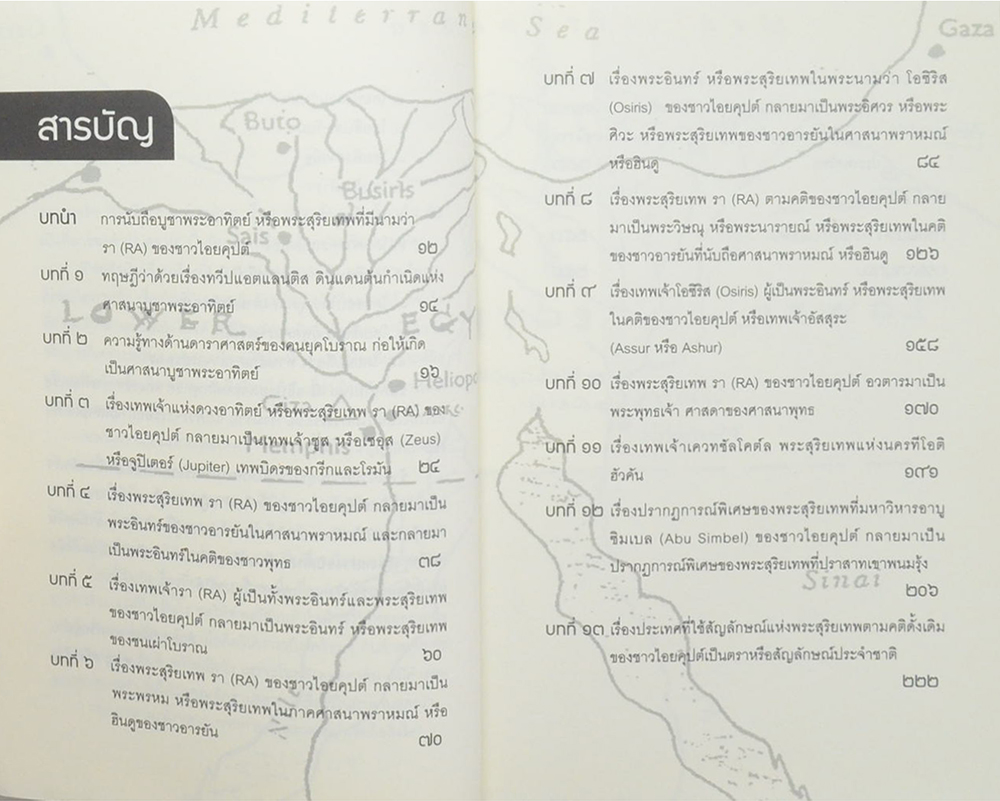 Mediterran
Sea
Gaza
สารบัญ
Buto
Busiris
Sais
LOWER
EGY
Heliopo
Giza
Memphis
Sinai
บทนำ การนับถือบูชาพระอาทิตย์ หรือพระสุริยเทพที่มีนามว่า
รา (RA) ของชาวไอยคุปต์ ๑๒
บทที่ ๑ ทฤษฎีว่าด้วยเรื่องทวีปแอตแลนติส ดินแดนต้นกำเนิดแห่ง
ศาสนาบูชาพระอาทิตย์ ๑๔
บทที่ ๒ ความรู้ทางด้านดาราศาสตร์ของคนยุคโบราณ ก่อให้เกิด
เป็นศาสนาบูชาพระอาทิตย์ ๑๖
บทที่ ๓ เรื่องเทพเจ้าแห่งดวงอาทิตย์ หรือพระสุริยเทพ รา (RA) ของ
ชาวไอยคุปต์ กลายมาเป็นเทพเจ้าซูส หรือเซอุส (Zeus)
หรือจูปิเตอร์ (Jupiter) เทพบิดรของกรีกและโรมัน ๒๔
บทที่ ๔ เรื่องพระสุริยเทพ รา (RA) ของชาวไอยคุปต์ กลายมาเป็น
พระอินทร์ของชาวอารยันในศาสนาพราหมณ์ และกลายมา
เป็นพระอินทร์ในคติของชาวพุทธ ๓๘
บทที่ ๕ เรื่องเทพเจ้ารา (RA) ผู้เป็นทั้งพระอินทร์และพระสุริยเทพ
ของชาวไอยคุปต์ กลายมาเป็นพระอินทร์ หรือพระสุริยเทพ
ของชนเผ่าโบราณ ๖๐
บทที่ ๖ เรื่องพระสุริยเทพ รา (RA) ของชาวไอยคุปต์ กลายมาเป็น
พระพรหม หรือพระสุริยเทพในภาคศาสนาพราหมณ์ หรือ
ฮินดูของชาวอารยัน ๗๐
บทที่ ๗ เรื่องพระอินทร์ หรือพระสุริยเทพในพระนามว่า โอซิริส
(Osiris) ของชาวไอยคุปต์ กลายมาเป็นพระอิศวร หรือพระ
ศิวะ หรือพระสุริยเทพของชาวอารยันในศาสนาพราหมณ์
หรือฮินดู ๘๔
บทที่ ๘ เรื่องพระสุริยเทพ รา (RA) ตามคติของชาวไอยคุปต์ กลาย
มาเป็นพระวิษณุ หรือพระนารายณ์ หรือพระสุริยเทพในคติ
ของชาวอารยันที่นับถือศาสนาพราหมณ์ หรือฮินดู ๑๒๖
บทที่ ๙ เรื่องเทพเจ้าโอซิริส (Osiris) ผู้เป็นพระอินทร์ หรือพระสุริยเทพ
ในคติของชาวไอยคุปต์ หรือเทพเจ้าอัสสุระ
(Assur หรือ Ashur) ๑๕๘
บทที่ ๑๐ เรื่องพระสุริยเทพ รา (RA) ของชาวไอยคุปต์ อวตารมาเป็น
พระพุทธเจ้า ศาสดาของศาสนาพุทธ ๑๗๐
บทที่ ๑๑ เรื่องเทพเจ้าเควทซัลโคต์ล พระสุริยเทพแห่งนครทีโอติ
ฮัวคัน ๑๙๑
บทที่ ๑๒ เรื่องปรากฏการณ์พิเศษของพระสุริยเทพที่มหาวิหารอาบู
ซิมเบล (Abu Simbel) ของชาวไอยคุปต์ กลายมาเป็น
ปรากฏการณ์พิเศษของพระสุริยเทพที่ปราสาทเขาพนมรุ้ง
๒๐๖
บทที่ ๑๓ เรื่องประเทศที่ใช้สัญลักษณ์แห่งพระสุริยเทพตามคติดั้งเดิม
ของชาวไอยคุปต์เป็นตราหรือสัญลักษณ์ประจำชาติ
๒๒๒